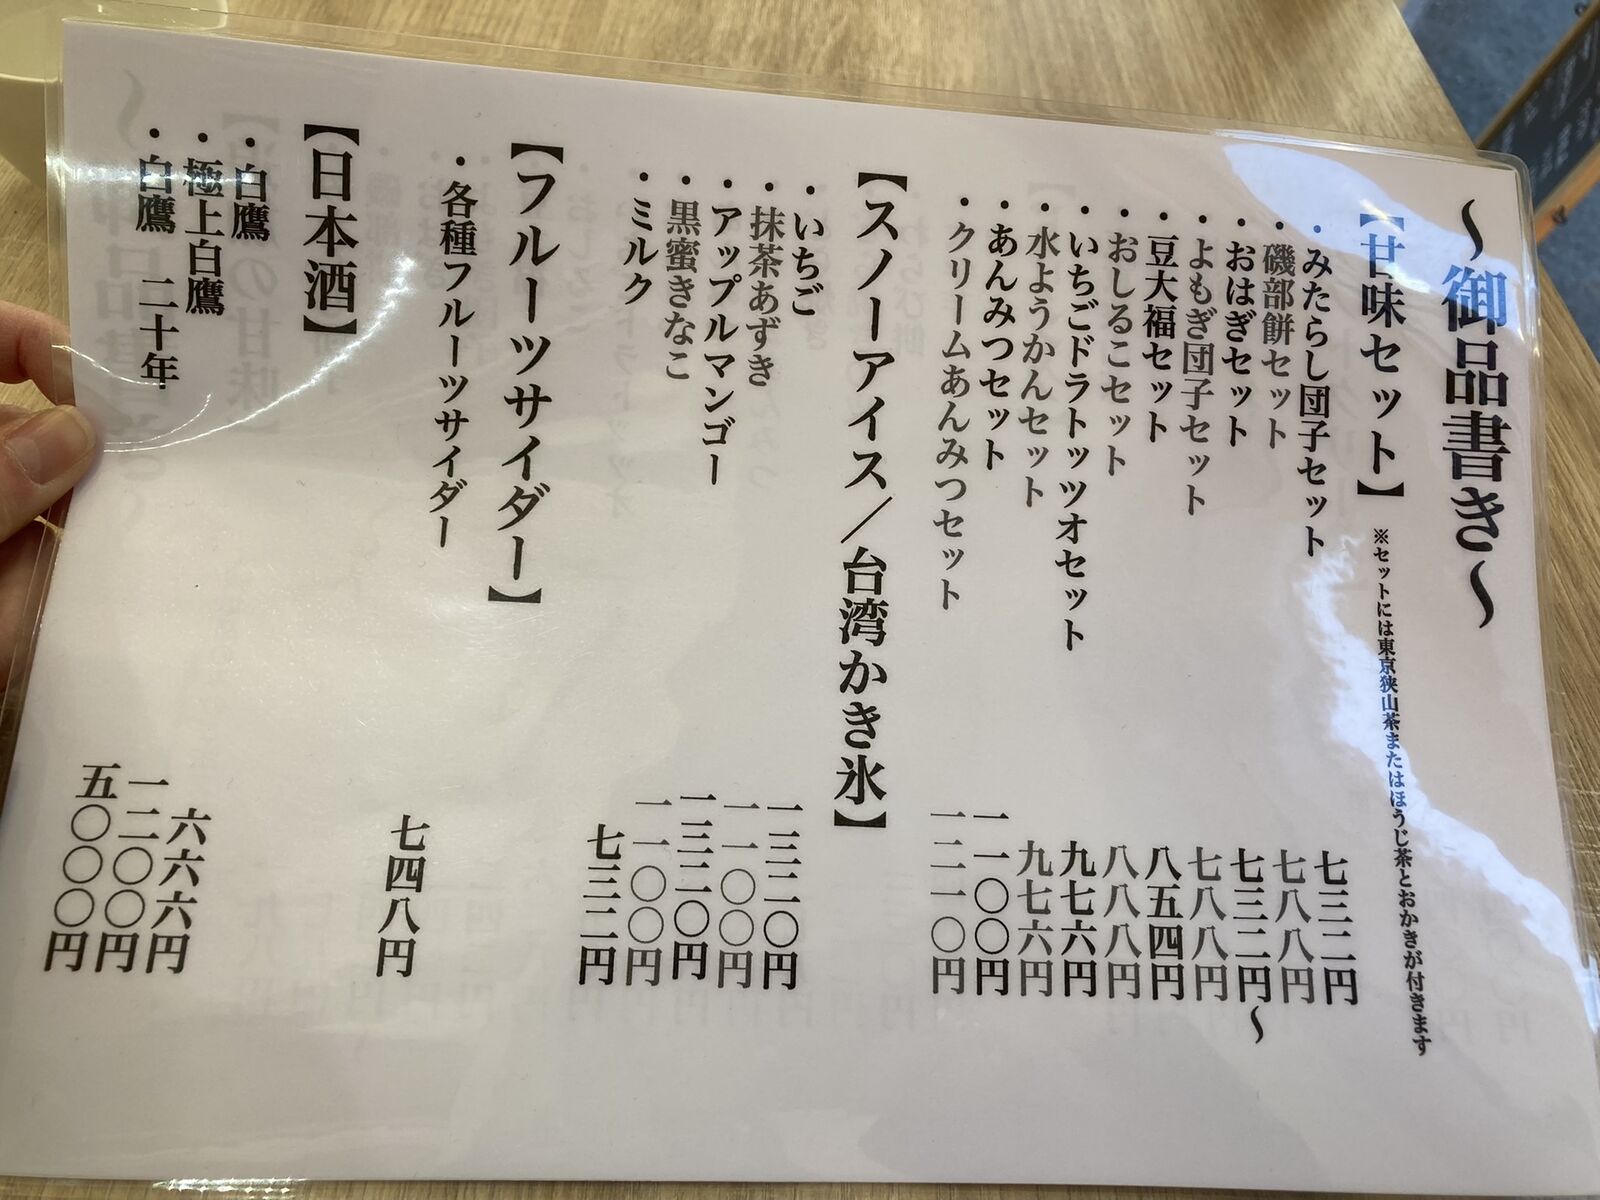 ～御品書き～
【甘味セット】 ※セットには東京狭山茶またはほうじ茶とおかきが付きます
・みたらし団子セット 七三二円
・磯部餅セット 七八八円
・おはぎセット 七三二円～
・よもぎ団子セット 七八八円
・豆大福セット 八五四円
・おしるこセット 八八八円
・いちごドラトッツオセット 九七六円
・水ようかんセット 九七六円
・あんみつセット 一一〇〇円
・クリームあんみつセット 一二一〇円
【スノーアイス／台湾かき氷】
・いちご 一三二〇円
・抹茶あずき 一一〇〇円
・アップルマンゴー 一三二〇円
・黒蜜きなこ 一一〇〇円
・ミルク 七三二円
【フルーツサイダー】
・各種フルーツサイダー 七四八円
【日本酒】
・白鷹 六六六円
・極上白鷹 一二〇〇円
・白鷹 二十年 五〇〇〇円